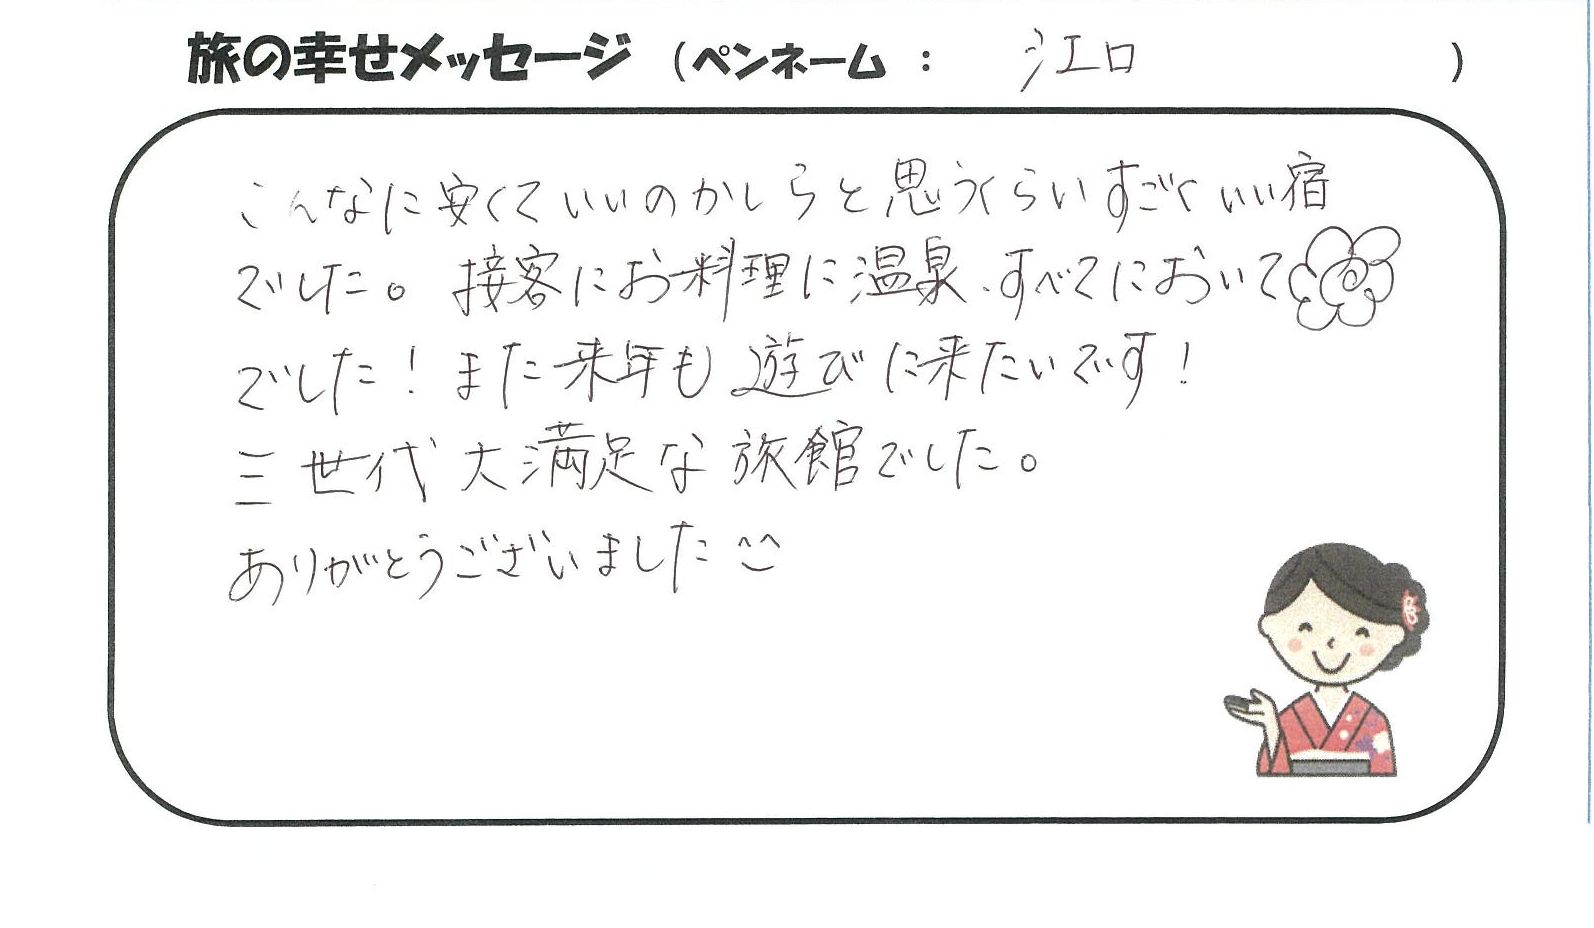 旅の幸せメッセージ (ペンネーム : 江口 )
こんなに安くていいのかしらと思うくらいすごくいい宿
でした。接客にお料理に温泉、すべてにおいて
でした！また来年も遊びに来たいです！
三世代大満足な旅館でした。
ありがとうございました^^